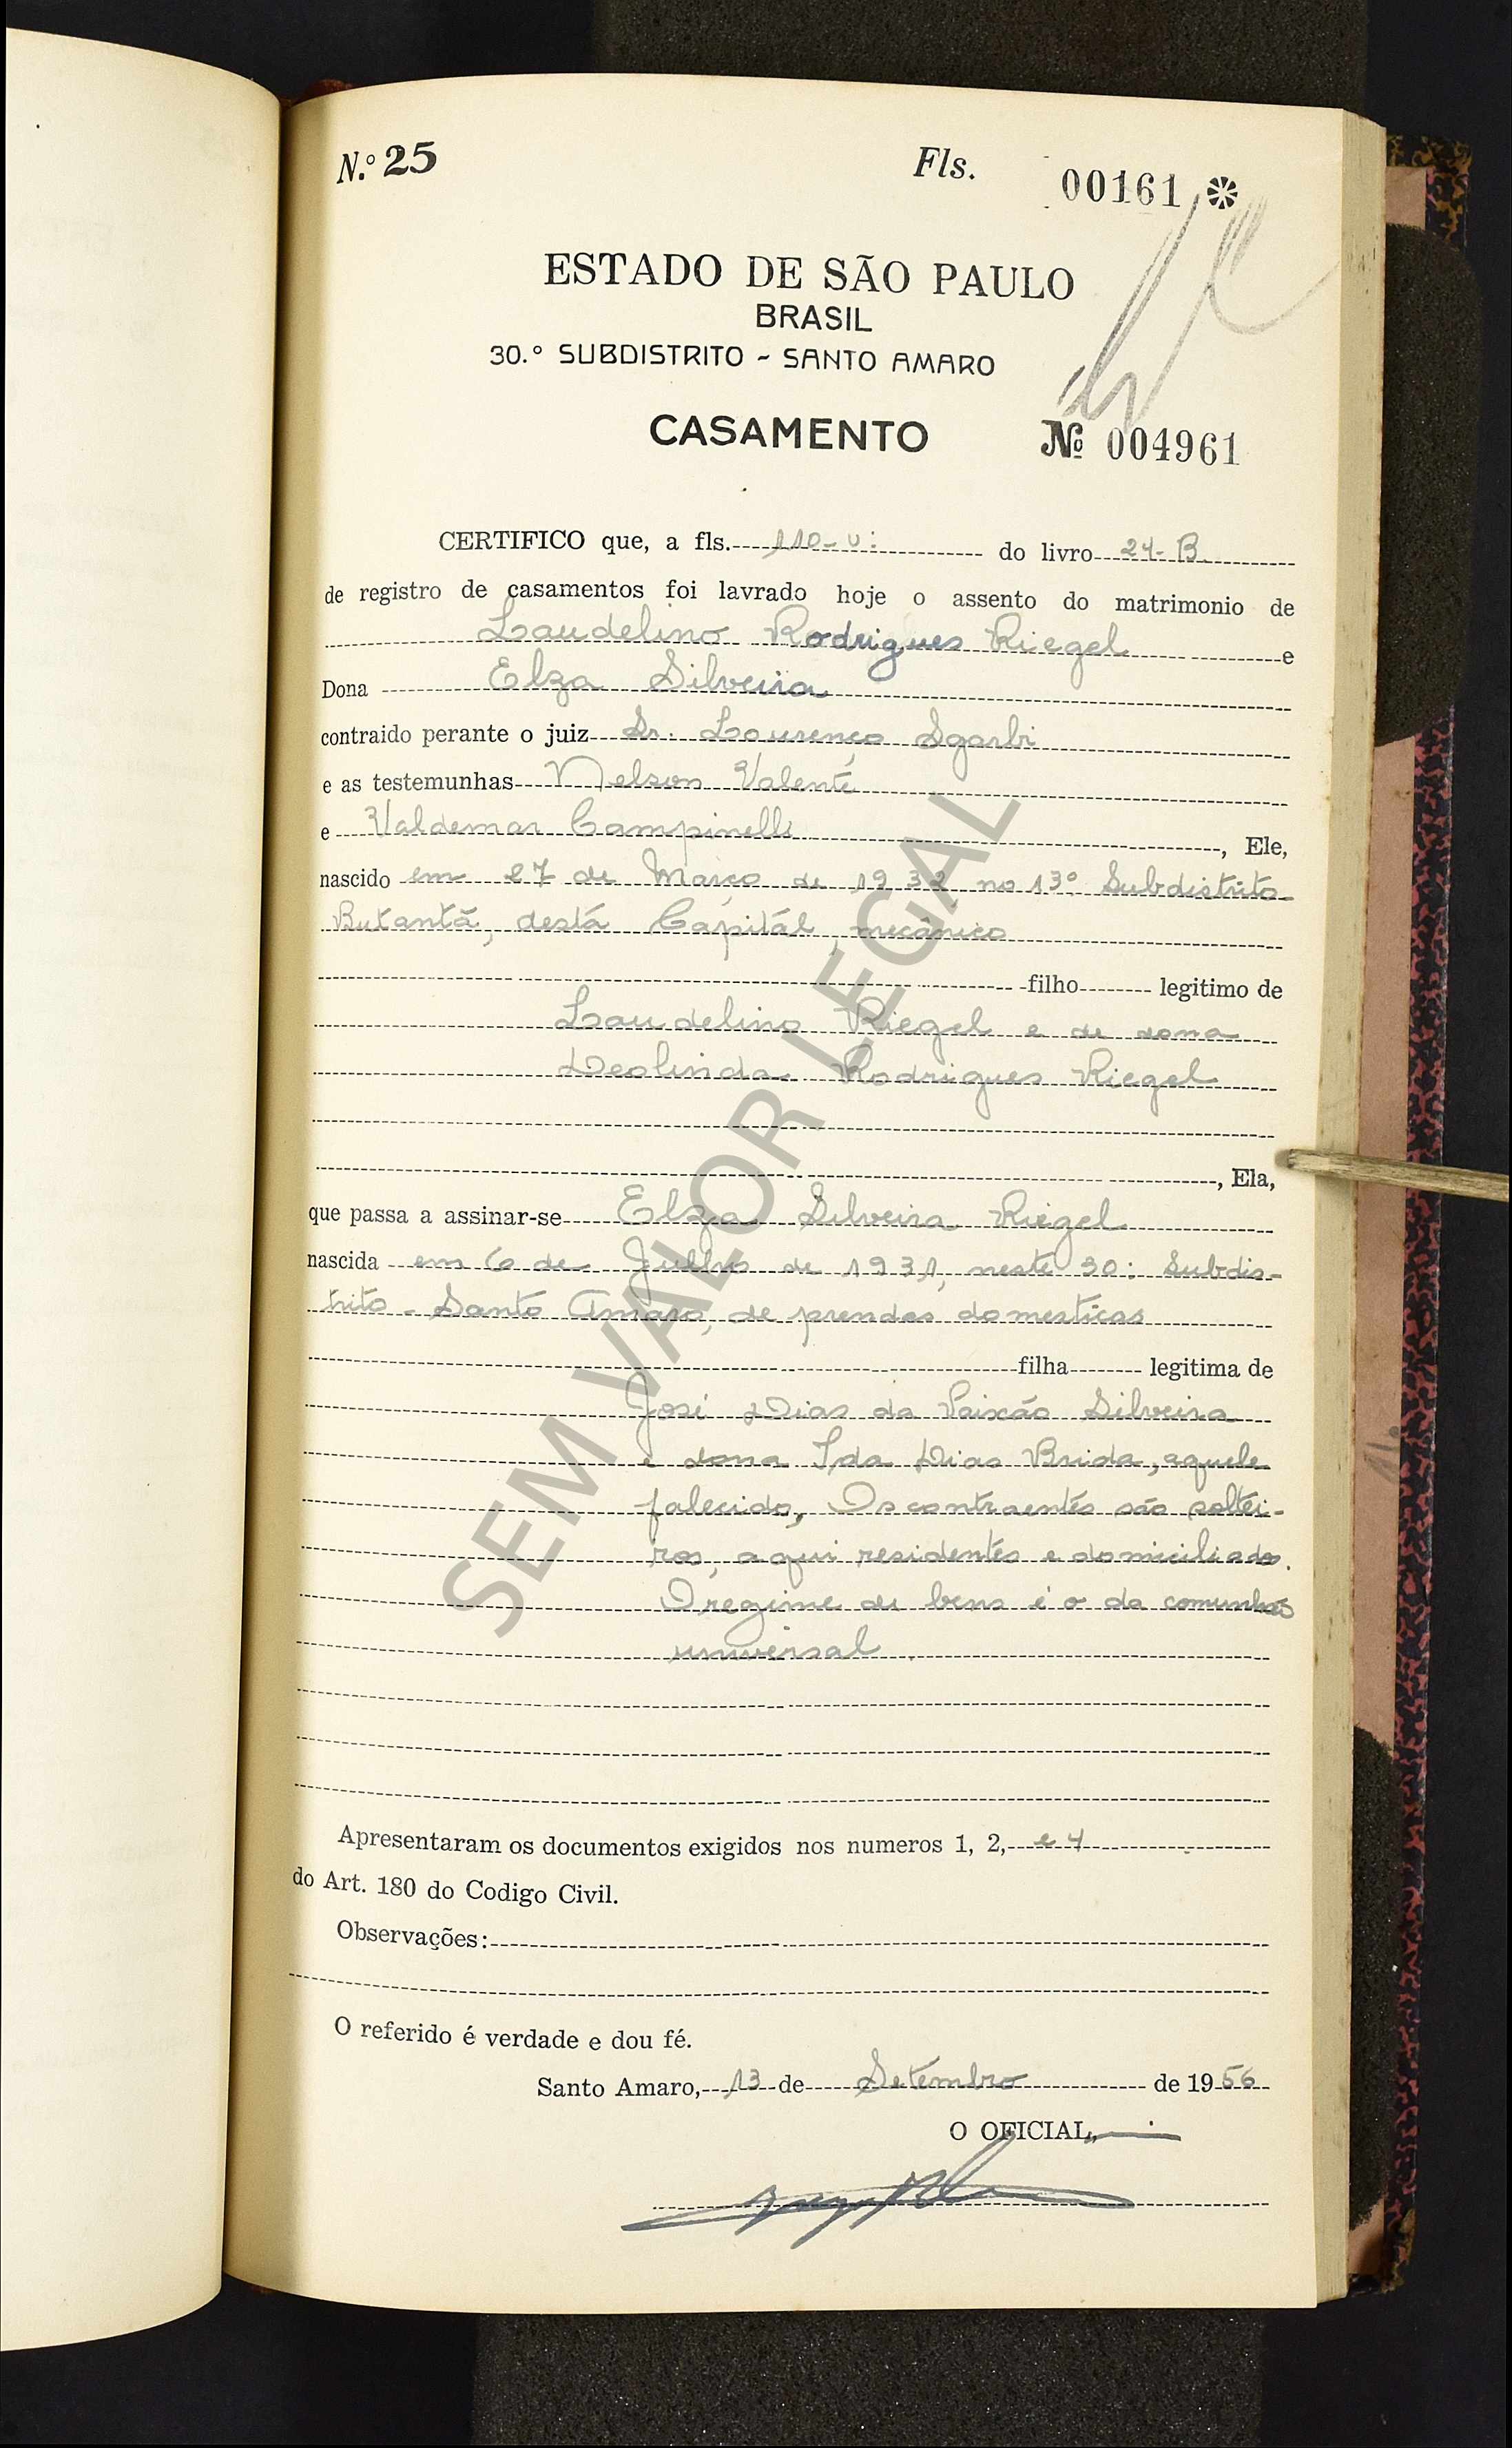 N.º 25 Fls. 00161 *
ESTADO DE SÃO PAULO
BRASIL
30.º SUBDISTRITO - SANTO AMARO
CASAMENTO Nº 004961
CERTIFICO que, a fls. 110-v: do livro 24-B
de registro de casamentos foi lavrado hoje o assento do matrimonio de
Laudelino Rodrigues Riegel e
Dona Elza Silveira
contraido perante o juiz Sr. Lourenço Sgarbi
e as testemunhas Nelson Valente
e Valdemar Campinelli, Ele,
nascido em 27 de Março de 1932 no 13º Subdistrito
Butantã, desta Capital, mecânico
filho legitimo de
Laudelino Riegel e de dona
Deolinda Rodrigues Riegel
, Ela,
que passa a assinar-se Elza Silveira Riegel
nascida em 6 de Julho de 1931, neste 30: Subdis-
trito - Santo Amaro, de prendas domesticas
filha legitima de
José Dias da Paixão Silveira
e dona Ida Dias Brida, aquele
falecido, Os contraentes são soltei-
ros, aqui residentes e domiciliados.
O regime de bens é o da comunhão
universal.
Apresentaram os documentos exigidos nos numeros 1, 2, e 4
do Art. 180 do Codigo Civil.
Observações:
O referido é verdade e dou fé.
Santo Amaro, 13 de Setembro de 1956
O OFICIAL,
SEM VALOR LEGAL